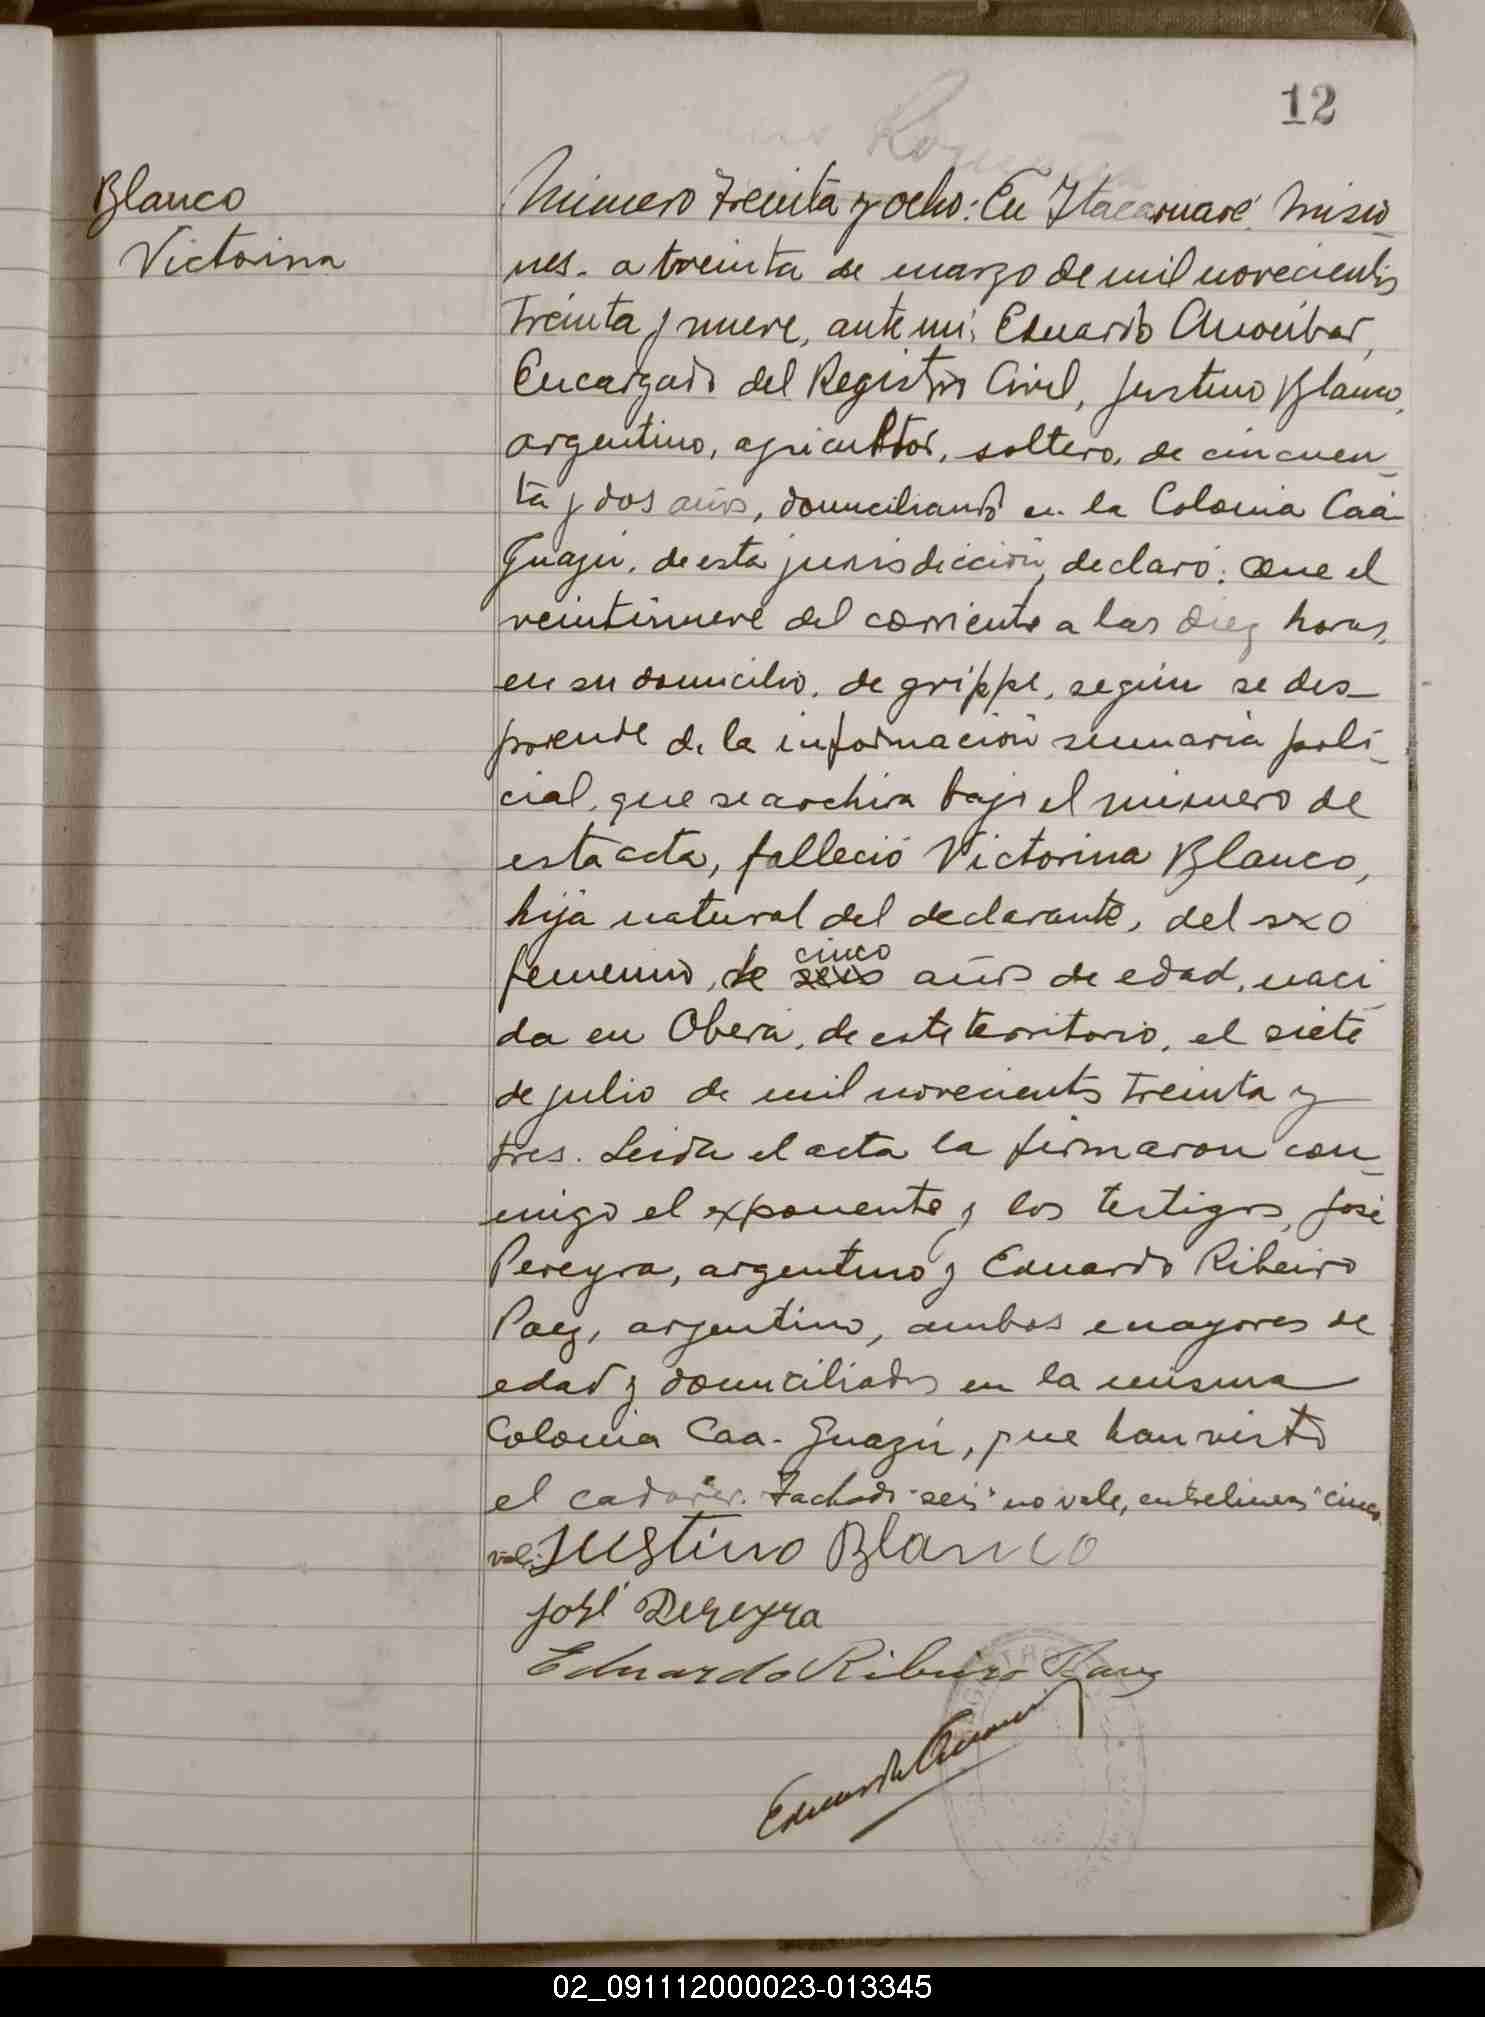 12
Blanco
Victorina
Número treinta y ocho: En Itacaruaré, Misio-
nes. a treinta de marzo de mil novecientos
treinta y nueve, ante mi, Eduardo
Encargado del Registro Civil, Justino Blanco,
argentino, agricultor, soltero, de cincuen-
ta y dos años, domiciliando en la Colonia Caá-
Guazú, de esta jurisdicción, declaró: Que el
veintinueve del corriente a las diez horas,
en su domicilio, de grippe, según se des-
prende de la información sumaria poli-
cial, que se archiva bajo el número de
esta acta, falleció Victorina Blanco,
hija natural del declarante, del sexo
femenino, de seis cinco años de edad, naci-
da en Oberá, de este territorio, el siete
de julio de mil novecientos treinta y
tres. Leida el acta la firmaron con-
migo el exponente y los testigos, José
Pereyra, argentino y Eduardo Ribeiro
Paez, argentino, ambos mayores de
edad y domiciliados en la misma
Colonia Caa-Guazú, que han visto
el cadaver. Tachado "seis" no vale, entrelineas "cinco"
vale.
Justino Blanco
José Pereyra
Eduardo Ribeiro Paez
Eduardo
02_091112000023-013345